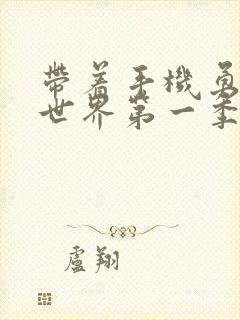 帶着手機
世界第一季
盧翔